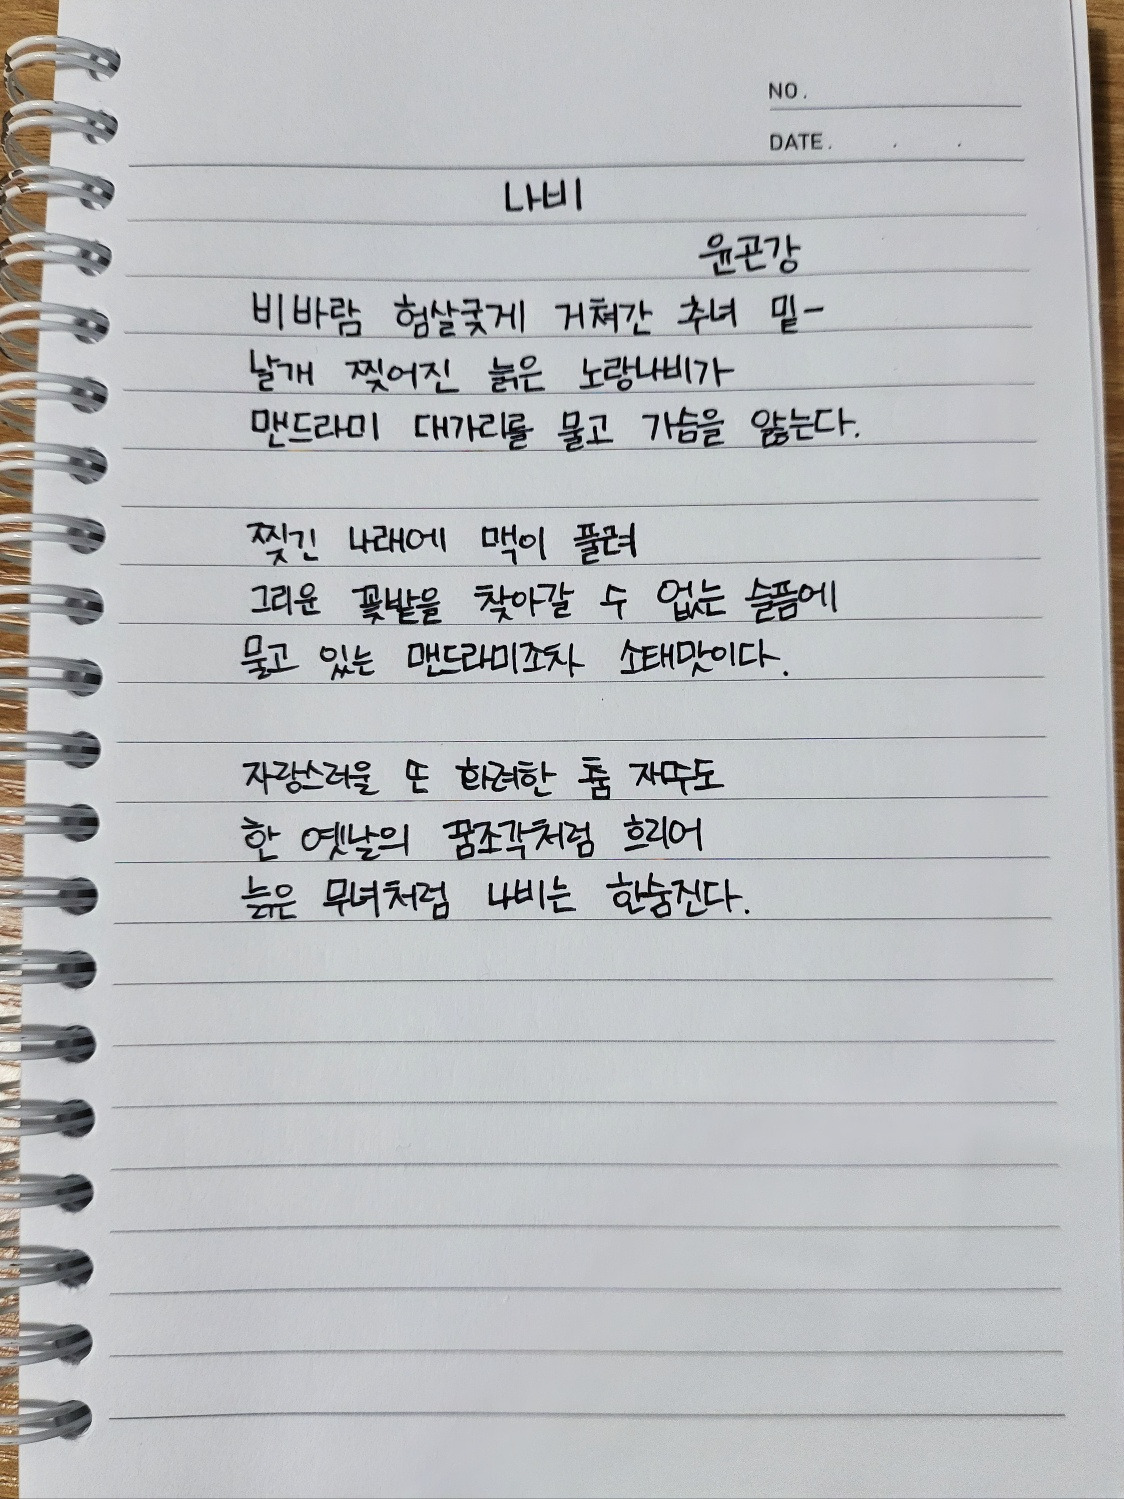 NO.
DATE. . .
나비
윤곤강
비바람 험살궂게 거쳐간 추녀 밑-
날개 찢어진 늙은 노랑나비가
맨드라미 대가리를 물고 가슴을 앓는다.
찢긴 나래에 맥이 풀려
그리운 꽃밭을 찾아갈 수 없는 슬픔에
물고 있는 맨드라미조차 소태맛이다.
자랑스러울 또 화려한 춤 재주도
한 옛날의 꿈조각처럼 흐리어
늙은 무녀처럼 나비는 한숨진다.